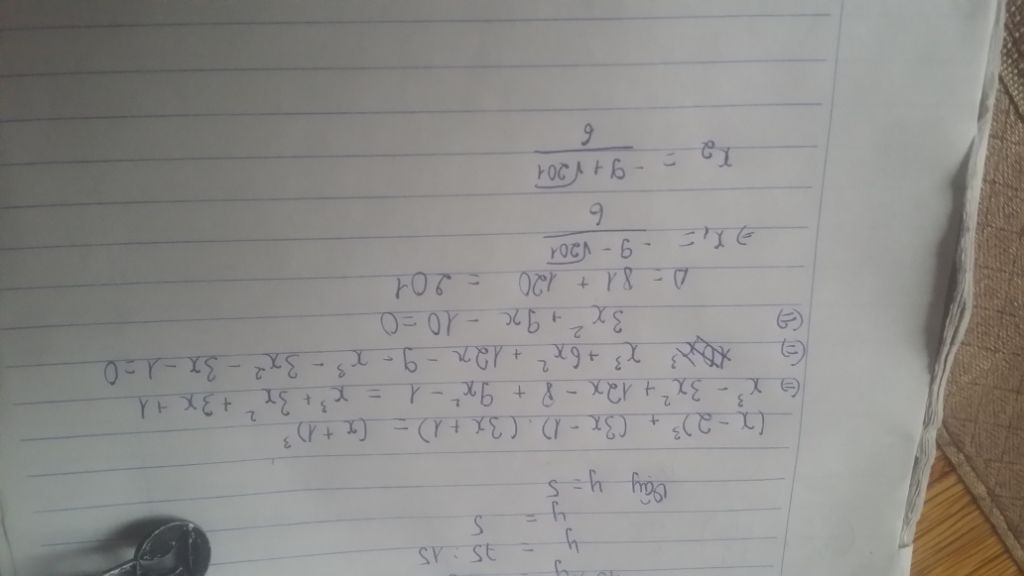 y = 75 : 15
y = 5
Vậy y = 5
(x - 2)³ + (3x - 1).(3x + 1) = (x + 1)³
(=) x³ - 3x² + 12x - 8 + 9x² - 1 = x³ + 3x² + 3x + 1
(=) x³ + 6x² + 12x - 9 - x³ - 3x² - 3x - 1 = 0
(=) 3x² + 9x - 10 = 0
Δ = 81 + 120 = 201
=> x₁ = (-9 - √201)/6
x₂ = (-9 + √201)/6